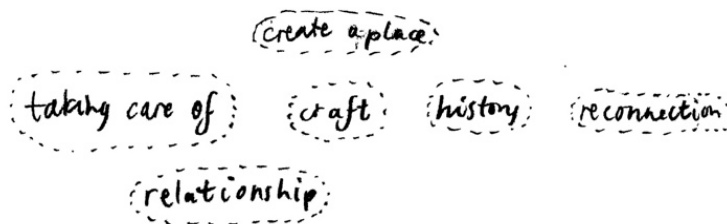 create a place
taking care of craft history reconnection
relationship